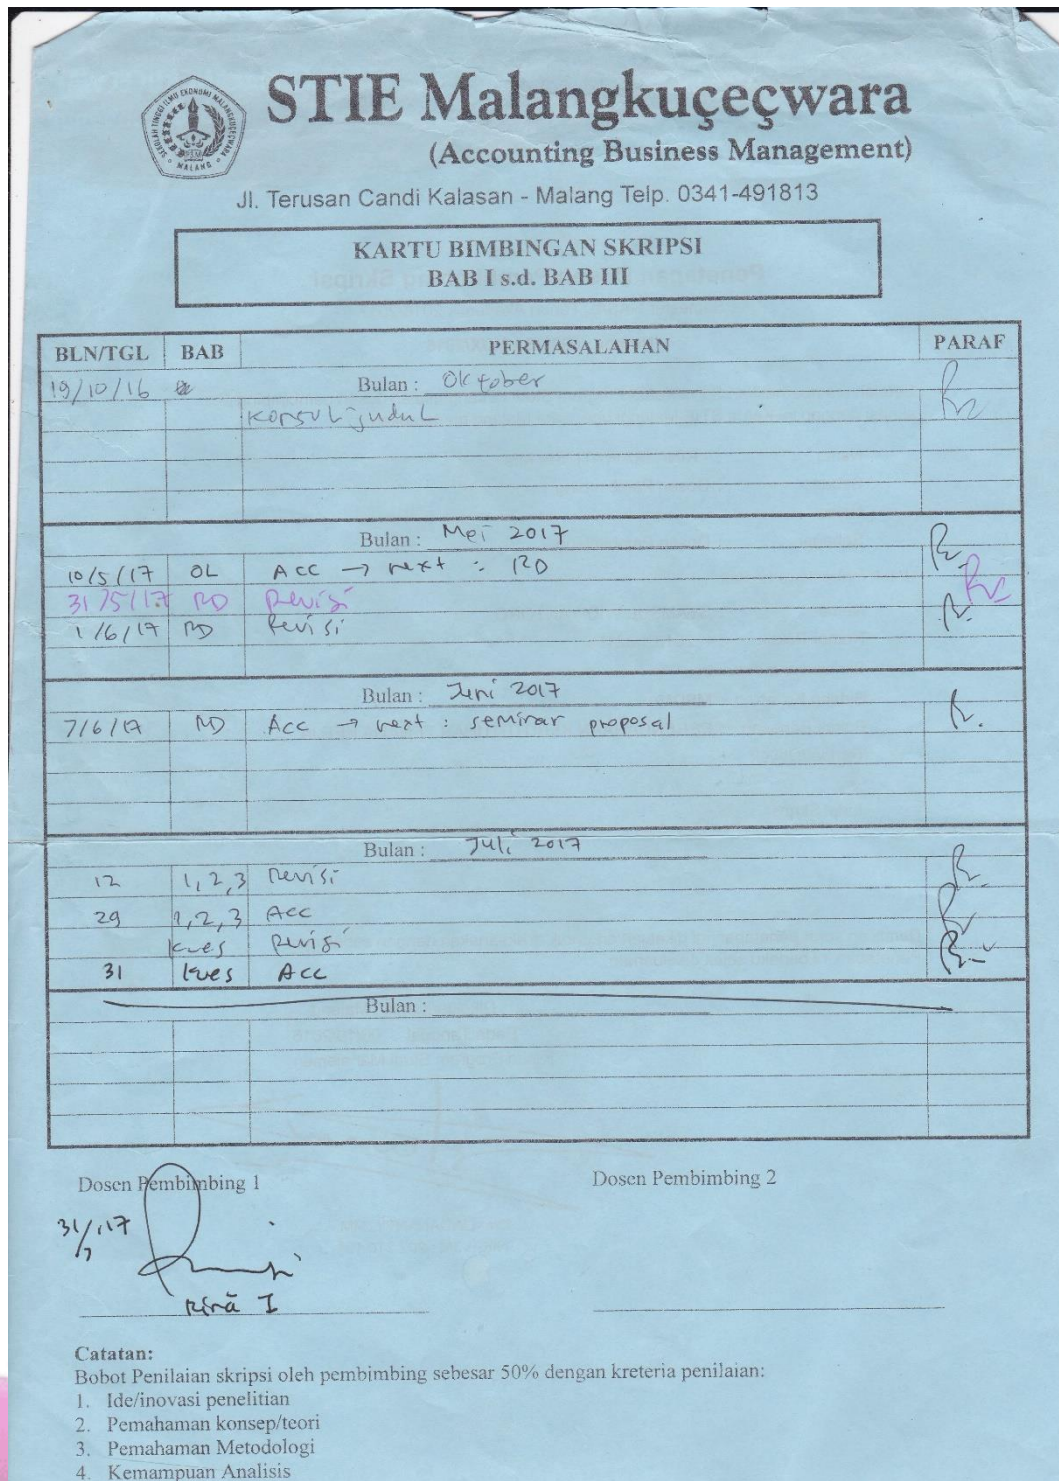 SEKOLAH TINGGI ILMU EKONOMI MALANGKUÇEÇWARA
MALANG
STIE Malangkuçeçwara
(Accounting Business Management)
Jl. Terusan Candi Kalasan - Malang Telp. 0341-491813
KARTU BIMBINGAN SKRIPSI
BAB I s.d. BAB III
BLN/TGL BAB PERMASALAHAN PARAF
19/10/16 Bulan : Oktober
Konsul judul
Bulan : Mei 2017
10/5/17 OL Acc → next : RD
31/5/17 RD Revisi
1/6/17 RD Revisi
Bulan : Juni 2017
7/6/17 RD Acc → next : seminar proposal
Bulan : Juli 2017
12 1, 2, 3 Revisi
29 1, 2, 3 Acc
kues Revisi
31 kues Acc
Bulan :
Dosen Pembimbing 1 Dosen Pembimbing 2
31/7 17
Rina I
Catatan:
Bobot Penilaian skripsi oleh pembimbing sebesar 50% dengan kreteria penilaian:
1. Ide/inovasi penelitian
2. Pemahaman konsep/teori
3. Pemahaman Metodologi
4. Kemampuan Analisis